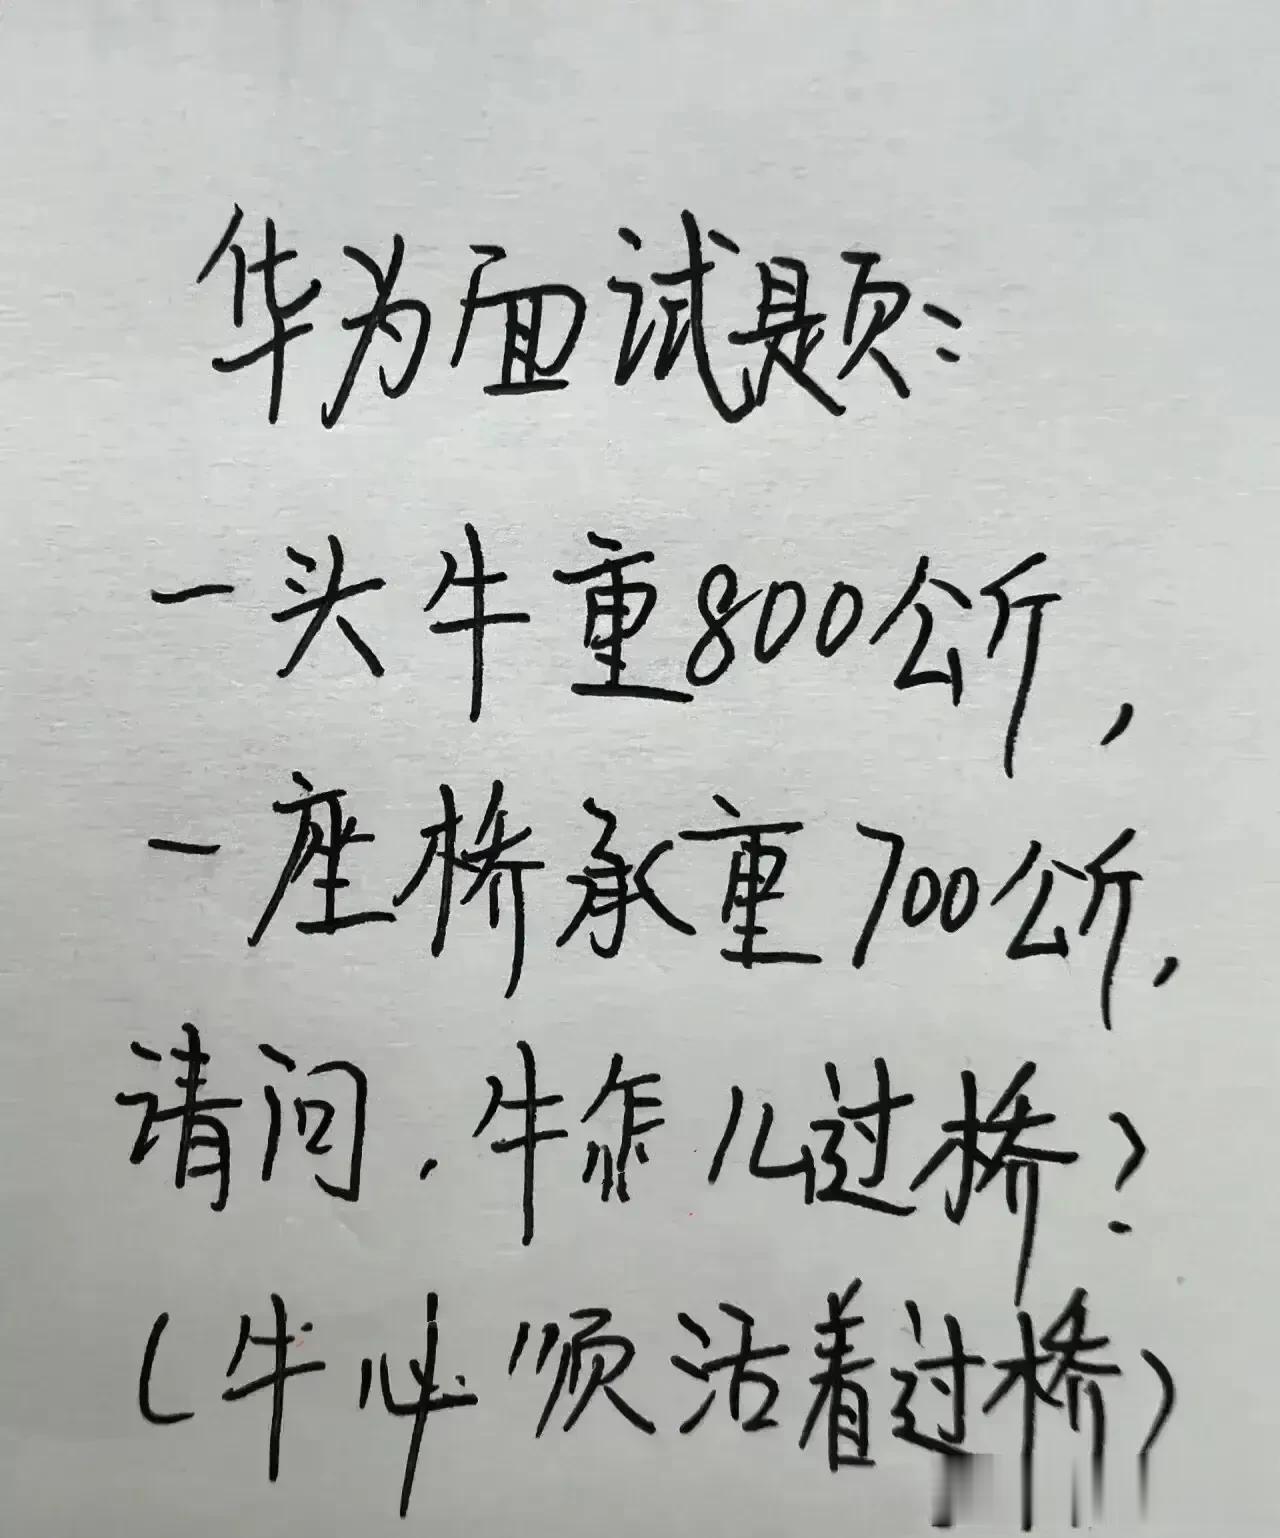 华为面试题：
一头牛重800公斤，
一座桥承重700公斤，
请问，牛怎么过桥？
（牛必须活着过桥）